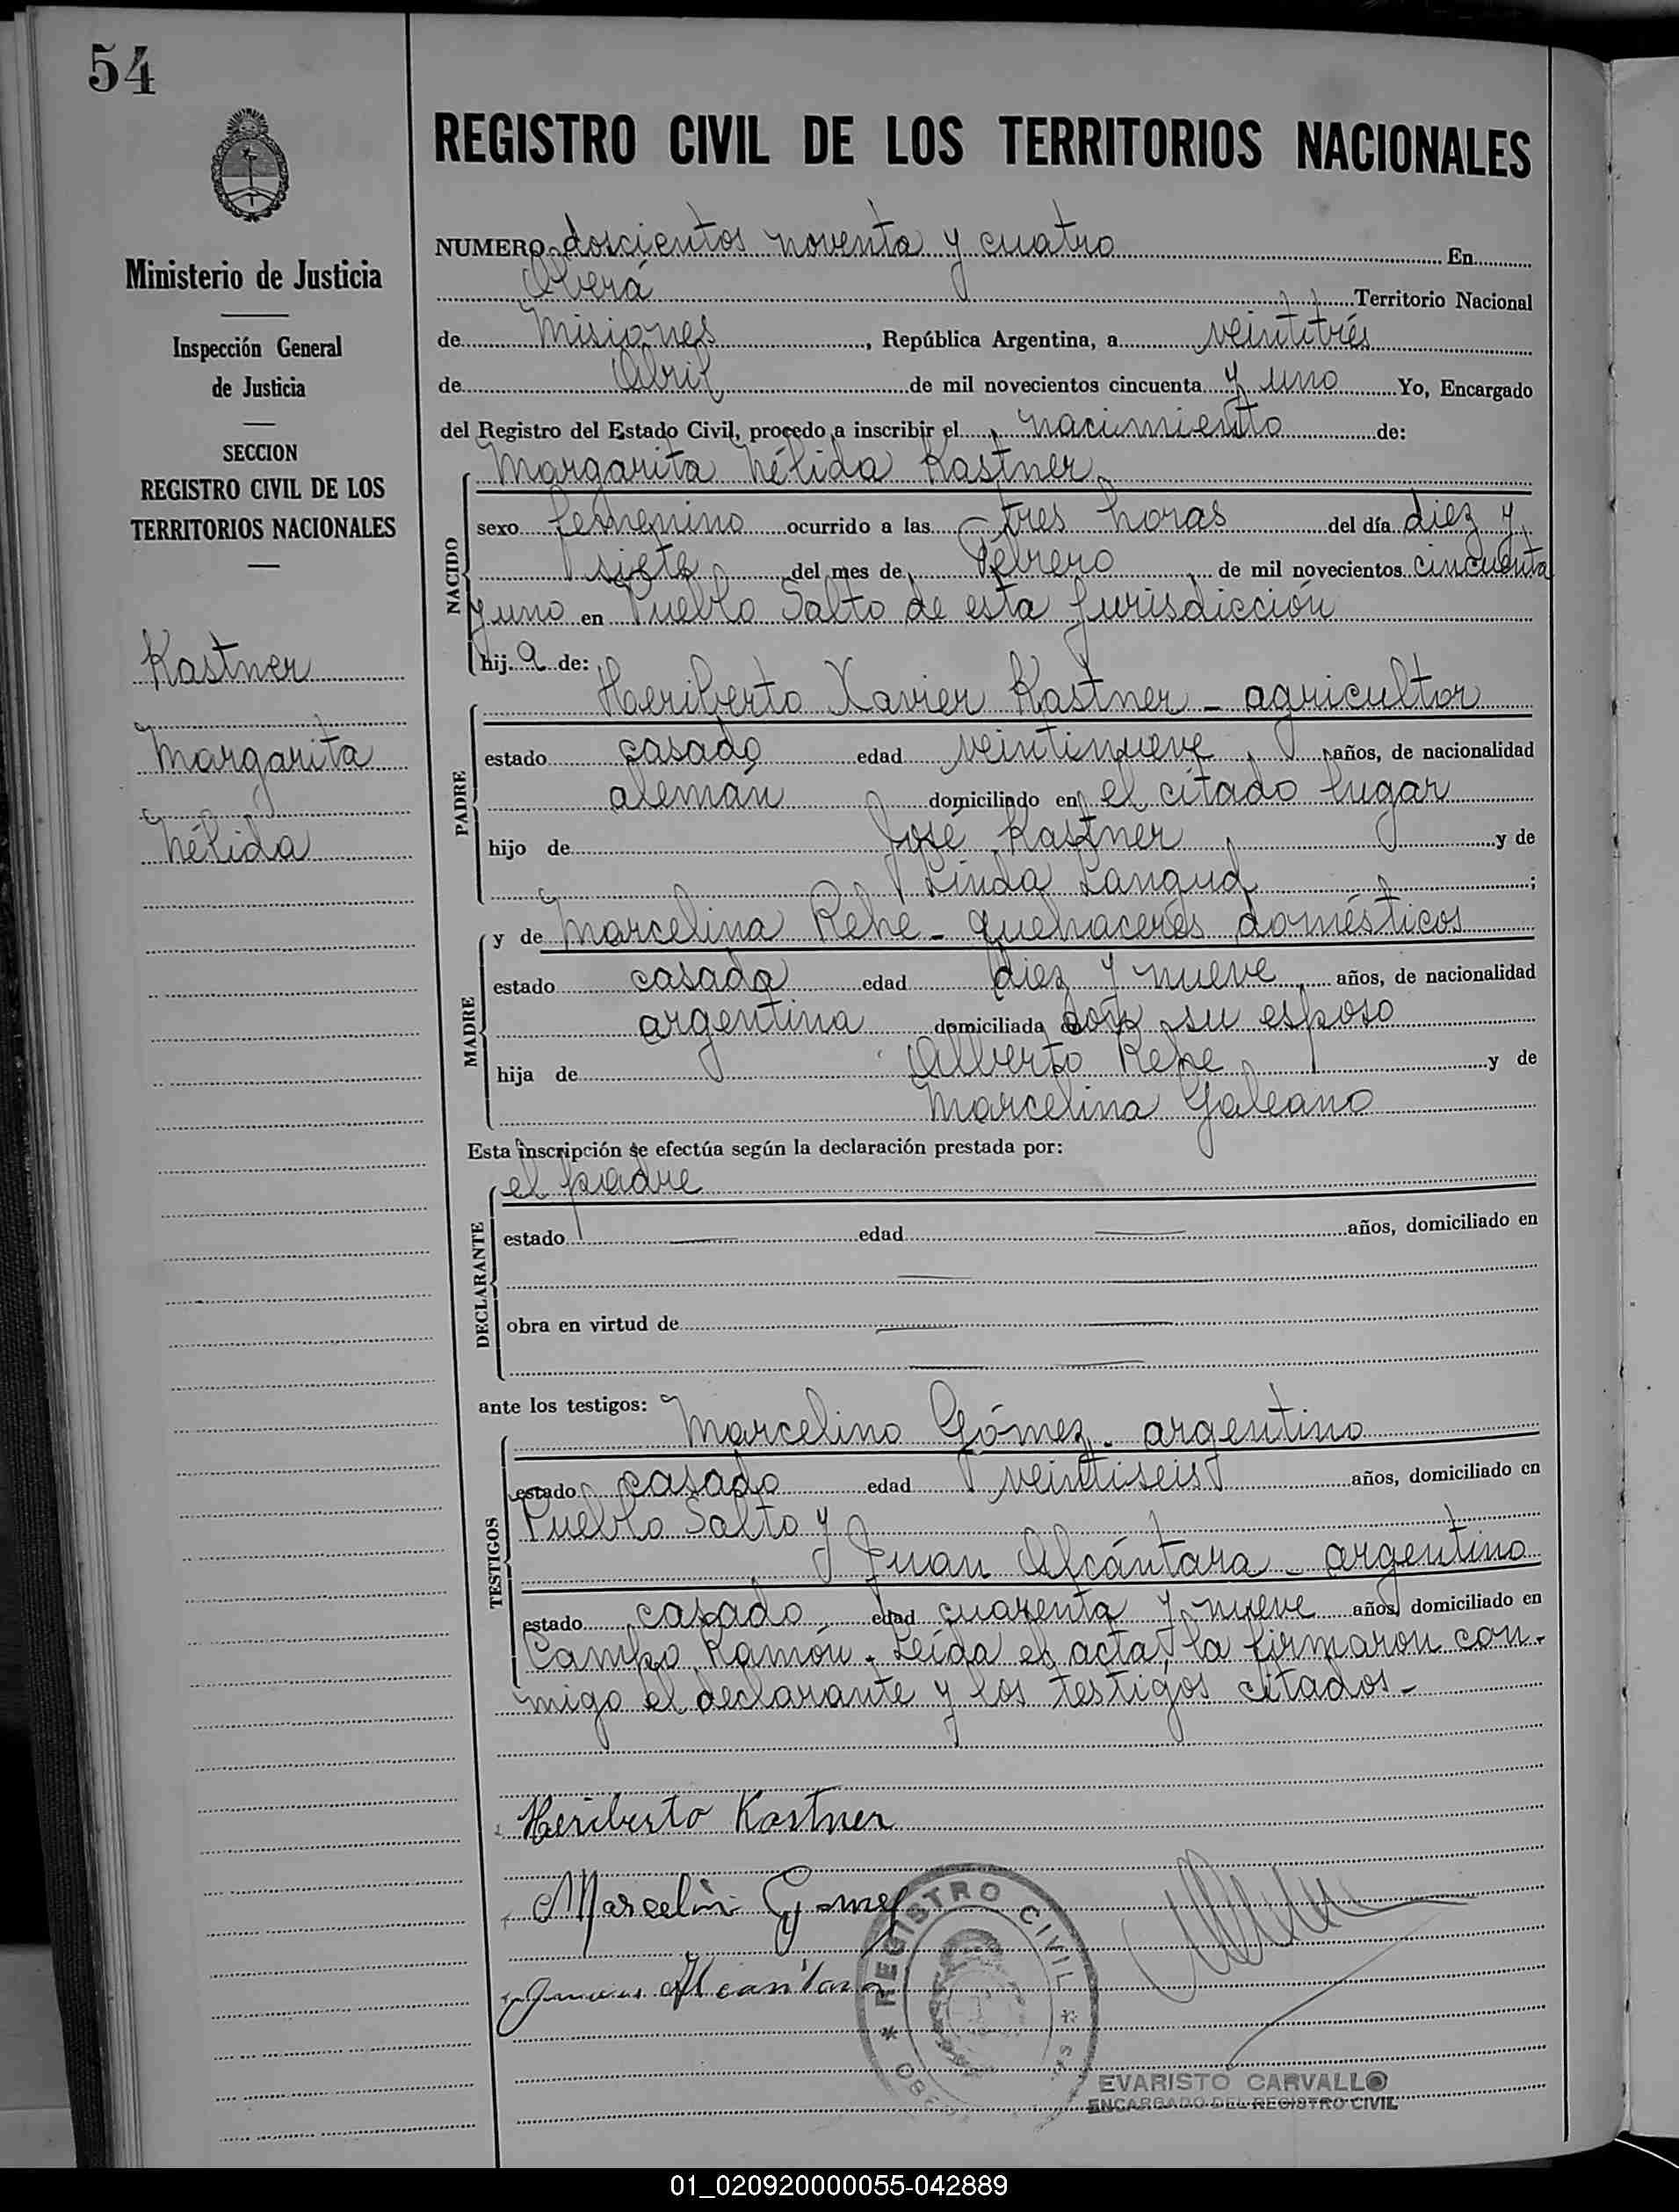 54
REGISTRO CIVIL DE LOS TERRITORIOS NACIONALES
Ministerio de Justicia
Inspección General
de Justicia
SECCION
REGISTRO CIVIL DE LOS
TERRITORIOS NACIONALES
Kastner
Margarita
Nélida
NUMERO doscientos noventa y cuatro En
Oberá Territorio Nacional
de Misiones, República Argentina, a veintitrés
de Abril de mil novecientos cincuenta y uno Yo, Encargado
del Registro del Estado Civil, procedo a inscribir el nacimiento de:
NACIDO
Margarita Nélida Kastner
sexo femenino ocurrido a las tres horas del día diez y
siete del mes de Febrero de mil novecientos cincuenta
y uno en Pueblo Salto de esta jurisdicción
hij a de:
PADRE
Heriberto Xavier Kastner - agricultor
estado casado edad veintinueve años, de nacionalidad
alemán domiciliado en el citado lugar
hijo de José Kastner y de
Linda Langud ;
MADRE
y de Marcelina Rehe - quehaceres domésticos
estado casada edad diez y nueve años, de nacionalidad
argentina domiciliada con su esposo
hija de Alberto Rehe y de
Marcelina Galeano
Esta inscripción se efectúa según la declaración prestada por:
DECLARANTE
el padre
estado edad años, domiciliado en
obra en virtud de
ante los testigos:
TESTIGOS
Marcelino Gómez - argentino
estado casado edad veintiseis años, domiciliado en
Pueblo Salto y
Juan Alcántara - argentino
estado casado edad cuarenta y nueve años, domiciliado en
Campo Ramón. Leída el acta, la firmaron con-
migo el declarante y los testigos citados -
Heriberto Kastner
Marcelino Gomez
Alcantara
REGISTRO CIVIL
EVARISTO CARVALLO
ENCARGADO DEL REGISTRO CIVIL
01_020920000055-042889